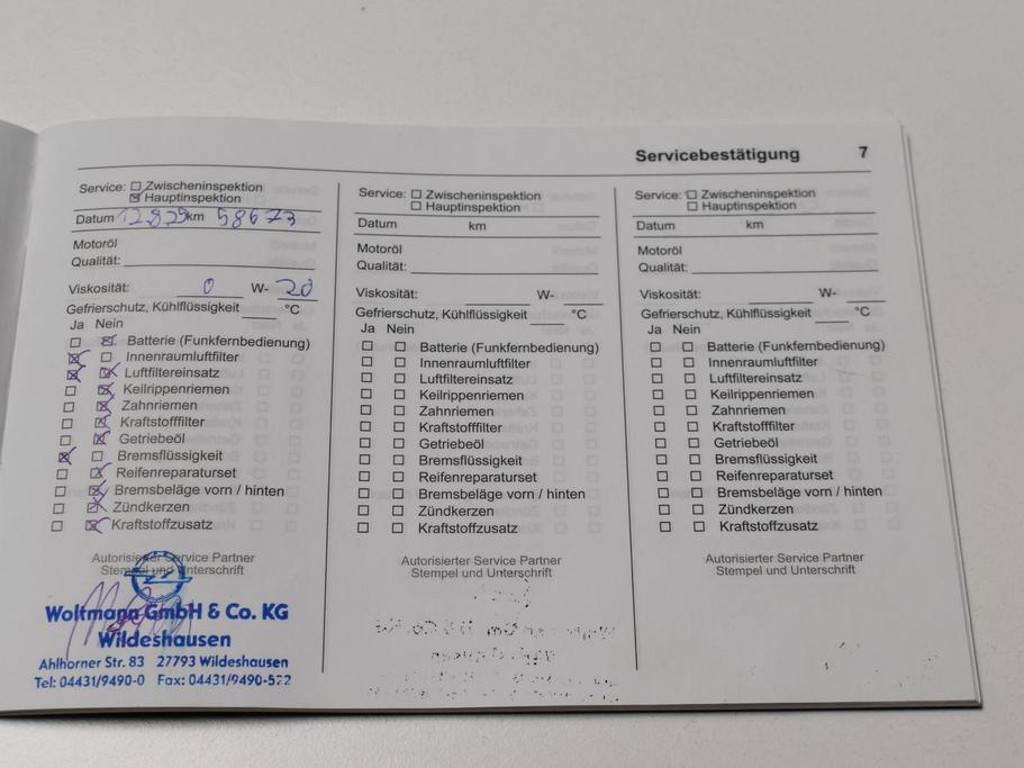 Servicebestätigung 7
Service: Zwischeninspektion
Hauptinspektion
Datum 12.8.25 km 58673
Motoröl
Qualität:
Viskosität: 0 W- 20
Gefrierschutz, Kühlflüssigkeit °C
Ja Nein
Batterie (Funkfernbedienung)
Innenraumluftfilter
Luftfiltereinsatz
Keilrippenriemen
Zahnriemen
Kraftstofffilter
Getriebeöl
Bremsflüssigkeit
Reifenreparaturset
Bremsbeläge vorn / hinten
Zündkerzen
Kraftstoffzusatz
Autorisierter Service Partner
Stempel und Unterschrift
Woltmann GmbH & Co. KG
Wildeshausen
Ahlhorner Str. 83 27793 Wildeshausen
Tel: 04431/9490-0 Fax: 04431/9490-522
Service: Zwischeninspektion
Hauptinspektion
Datum km
Motoröl
Qualität:
Viskosität: W-
Gefrierschutz, Kühlflüssigkeit °C
Ja Nein
Batterie (Funkfernbedienung)
Innenraumluftfilter
Luftfiltereinsatz
Keilrippenriemen
Zahnriemen
Kraftstofffilter
Getriebeöl
Bremsflüssigkeit
Reifenreparaturset
Bremsbeläge vorn / hinten
Zündkerzen
Kraftstoffzusatz
Autorisierter Service Partner
Stempel und Unterschrift
Service: Zwischeninspektion
Hauptinspektion
Datum km
Motoröl
Qualität:
Viskosität: W-
Gefrierschutz, Kühlflüssigkeit °C
Ja Nein
Batterie (Funkfernbedienung)
Innenraumluftfilter
Luftfiltereinsatz
Keilrippenriemen
Zahnriemen
Kraftstofffilter
Getriebeöl
Bremsflüssigkeit
Reifenreparaturset
Bremsbeläge vorn / hinten
Zündkerzen
Kraftstoffzusatz
Autorisierter Service Partner
Stempel und Unterschrift